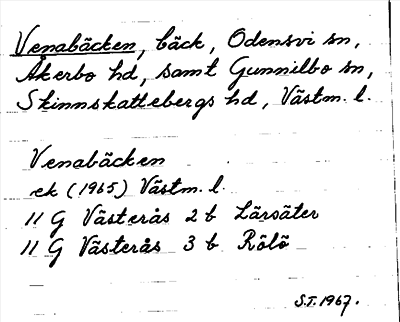 Venabäcken, bäck, Odensvi sn,
Åkerbo hd, samt Gunnilbo sn,
Skinnskattebergs hd, Västm. l.
Venabäcken
ek (1965) Västm. l.
11 G Västerås 2 b Lärsäter
11 G Västerås 3 b Rölö
S.T. 1967.